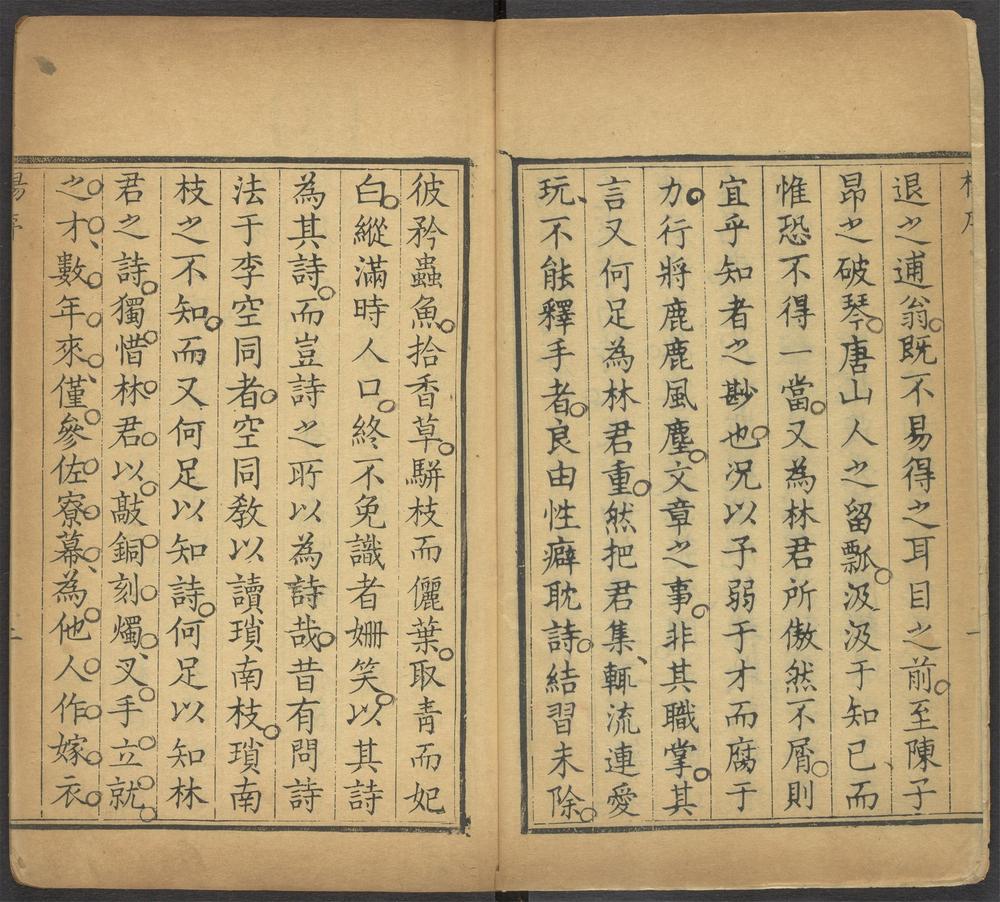 退之逋翁。既不易得之耳目之前。至陳子
昂之破琴。唐山人之留瓢。汲汲于知已、而
惟恐不得一當。又為林君所傲然不屑。則
宜乎知者之尠也。況以予弱于才而腐于
力。行將鹿鹿風塵。文章之事。非其職掌。其
言又何足為林君重。然把君集、輒流連愛
玩、不能釋手者。良由性癖耽詩。結習未除。
彼矜蟲魚。拾香草。駢枝而儷葉。取青而妃
白。縱滿時人口。終不免識者姍笑。以其詩
為其詩。而豈詩之所以為詩哉。昔有問詩
法于李空同者。空同教以讀瑣南枝。瑣南
枝之不知。而又何足以知詩。何足以知林
君之詩。獨惜林君以敲銅刻燭、叉手立就。
之才、數年來、僅參佐寮幕、為他人作嫁衣。
三